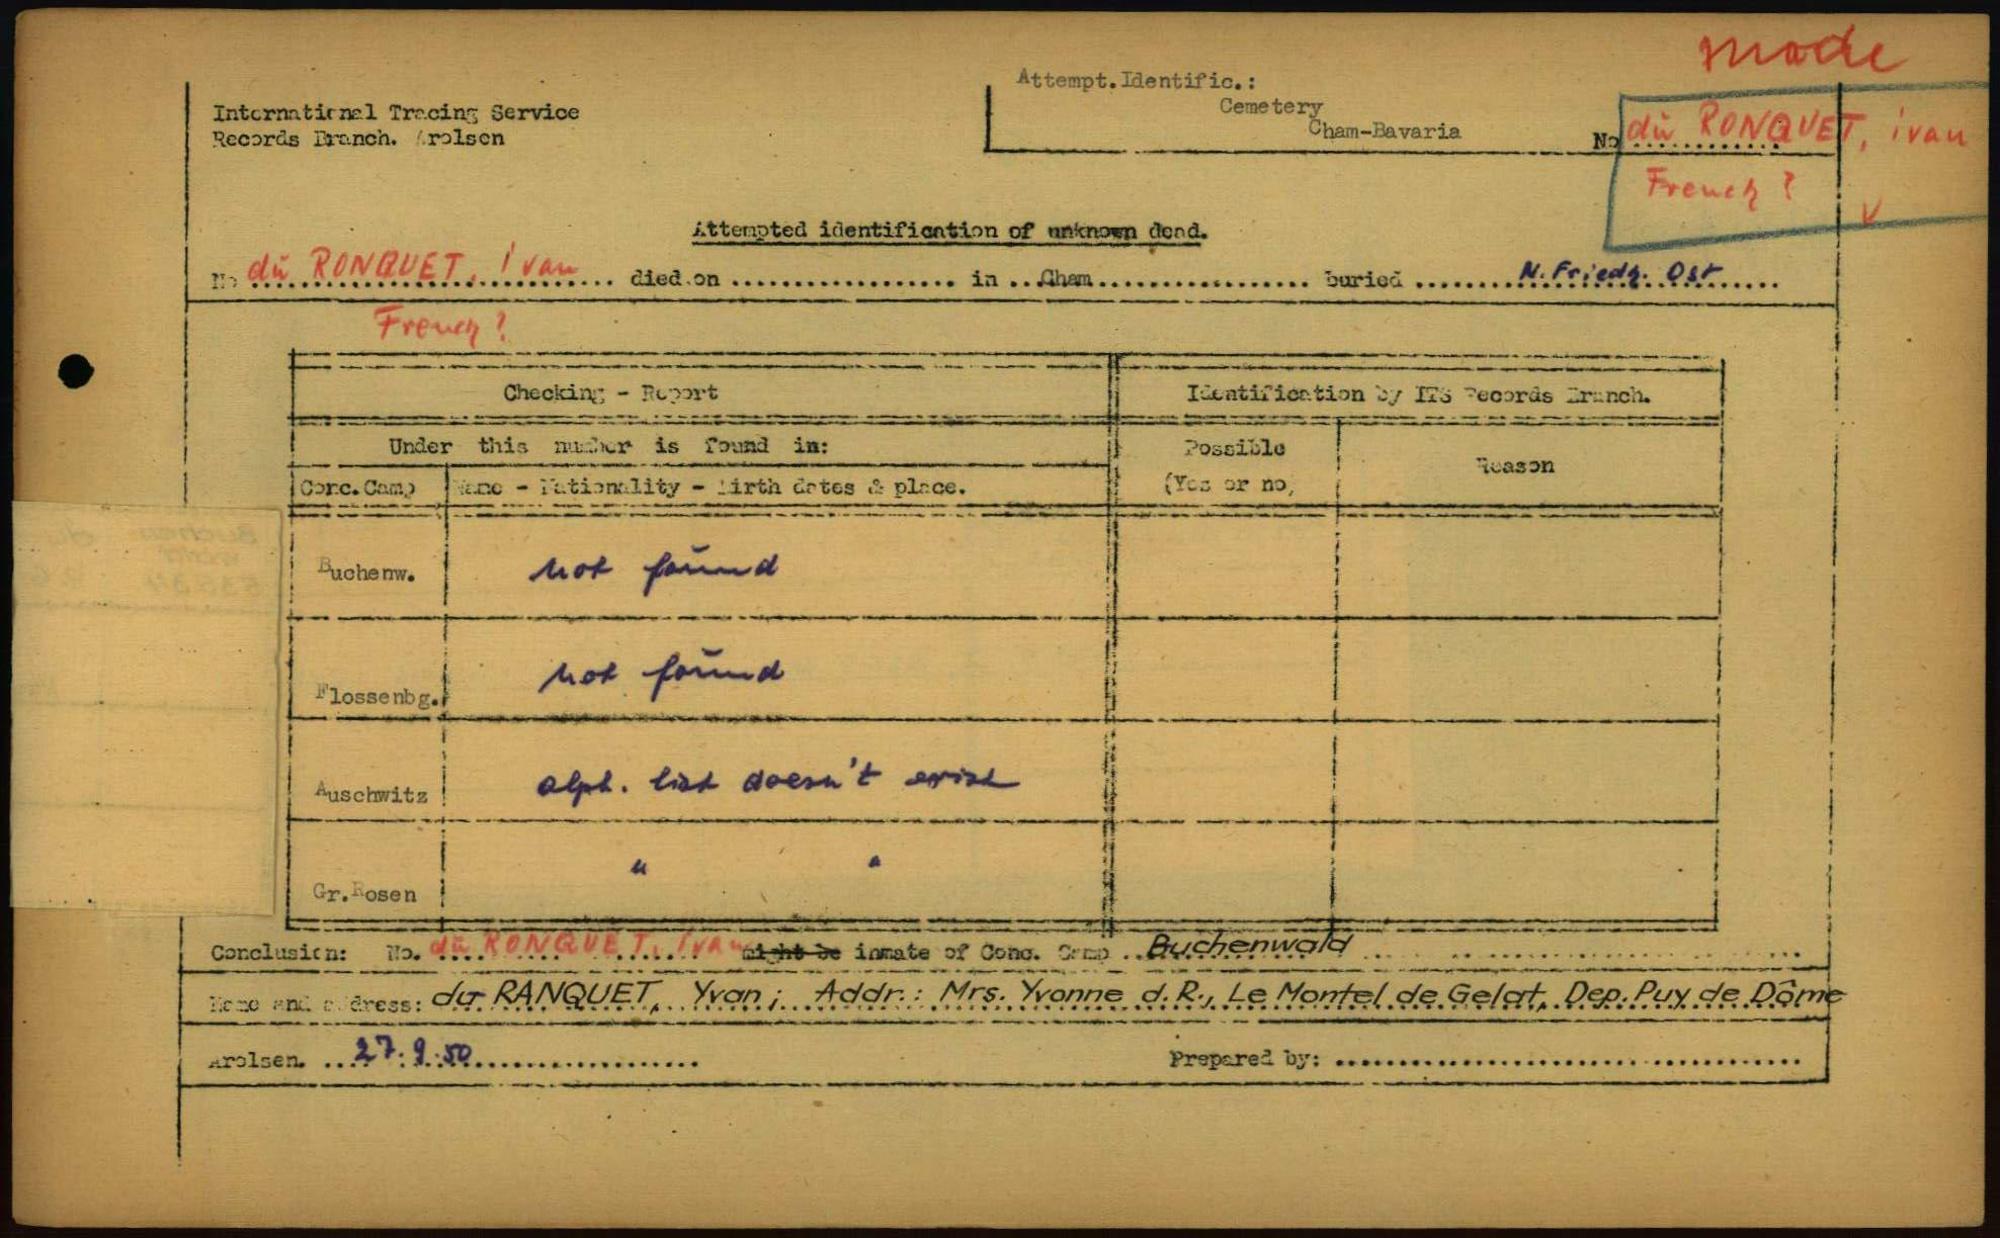 made
International Tracing Service
Records Branch. Arolsen
Attempt.Identific.:
Cemetery
Cham-Bavaria
No du RONQUET, ivan
French?
Attempted identification of unknown dead.
No du RONQUET, ivan died on in Cham buried N. Friedh. Ost
French?
Checking - Report
Identification by ITS Records Branch.
Under this number is found in:
Possible
(Yes or no)
Reason
Conc.Camp
Name - Nationality - Birth dates & place.
Buchenw. not found
Flossenbg. not found
Auschwitz alph. list doesn't exist
Gr.Rosen " "
Conclusion: No. du RONQUET, ivan might be inmate of Conc. Camp Buchenwald
Name and address: du RANQUET, Yvan; Addr.: Mrs. Yvonne d. R., Le Montel de Gelat, Dep. Puy de Dôme
Arolsen. 27.9.50 Prepared by: